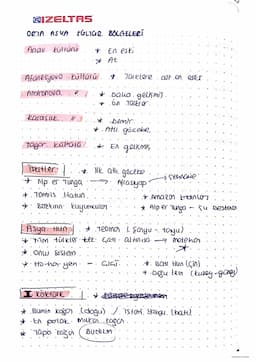 İZELTAŞ
ORTA ASYA KÜLTÜR BÖLGELERİ
Anav kültürü → En eski
→ At
Afanesyevo kültürü → Türklere ait en eski
Andronova " → Daha gelişmiş
→ En
Karasuk " → Demir
→ Atlı göçebe
Tagar kültürü → En gelişmiş
İskitler → İlk atlı göçebe
→ Alp er Tunga → Afrasyap → Şehname
→ Tomris Hatun → Amazon kadınları
→ Bozkırın kuyumcuları → Alp er Tunga - Şu destanı
Asya Hun → Teoman (Soyu - toyu)
→ Tüm Türkler tek çatı altında → Metehan
→ Onlu sistem
→ Ho-han yeh - Çiçi → Batı Hun (Çin)
→ Doğu Hun (kuzey-güney)
I. Köktürk →
→ Bumin kağan (doğu) / İstemi Yabgu (batı)
→ En parlak Mukan kağan
→ Tapo kağan Budizm